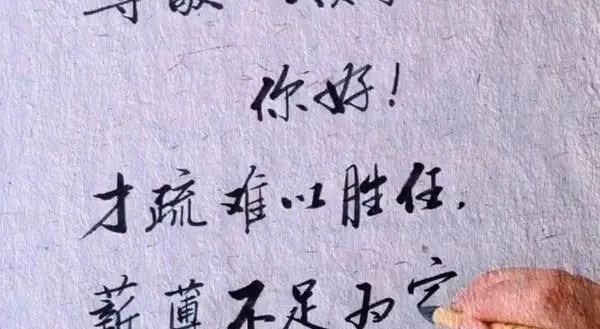 尊敬
你好！
才疏难以胜任.
薪薄不足为